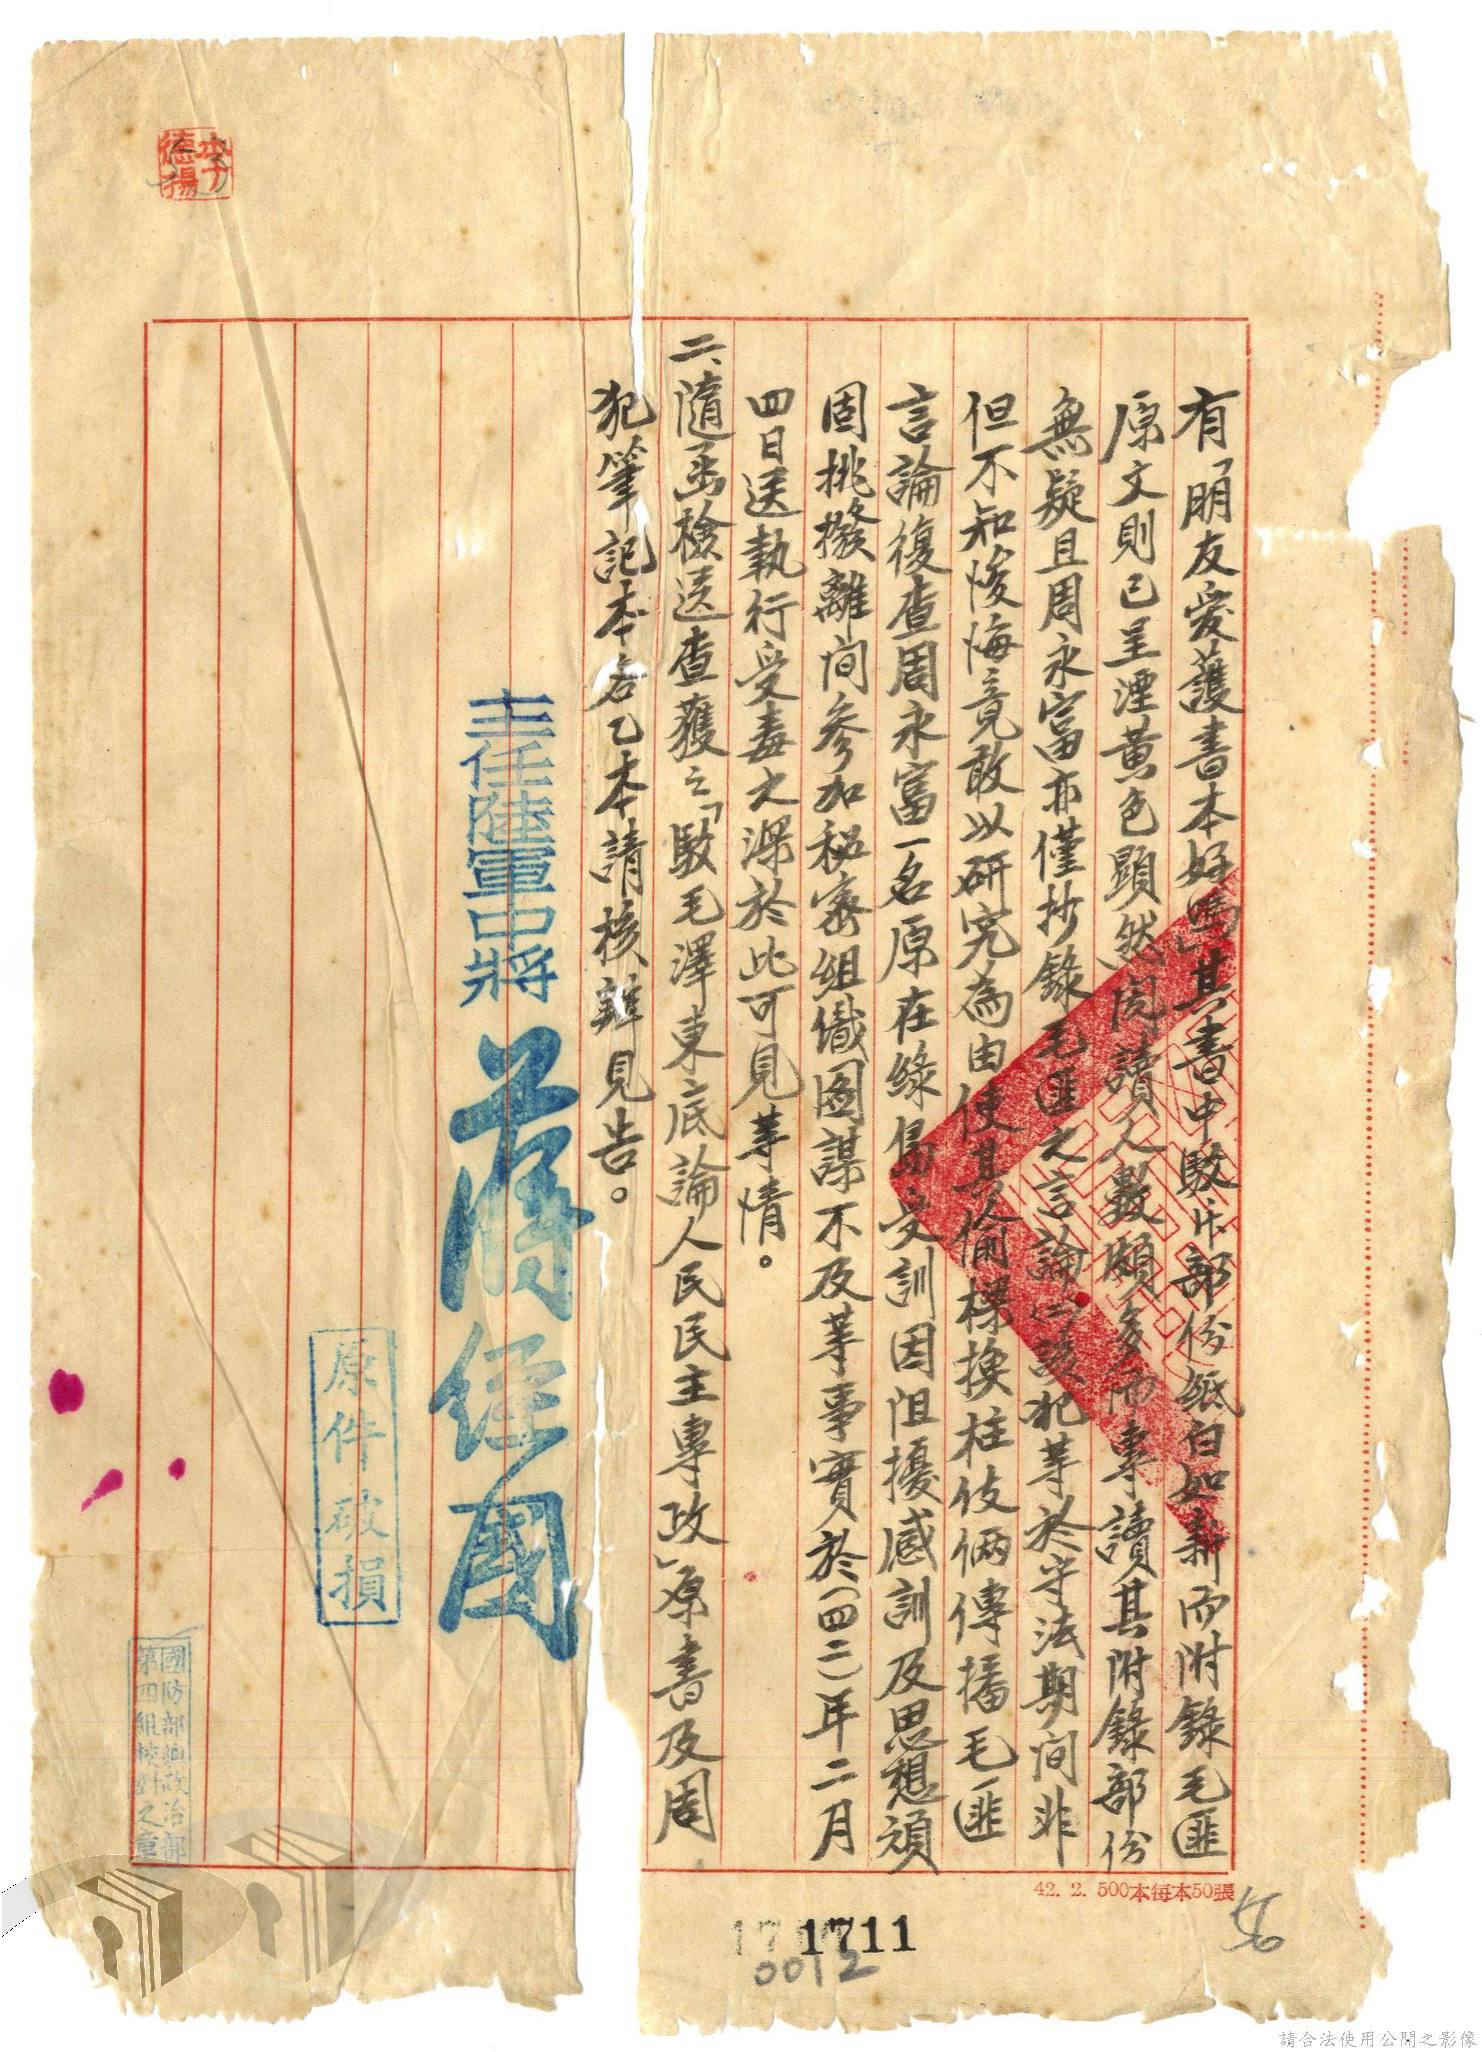 有「朋友愛護書本好嗎」其書中駁斥部份紙白如新而附錄毛匪
原文則已呈湮黃色顯然閱讀人數頗多而專讀其附錄部份
無疑且周永富亦僅抄錄毛匪之言論㈡該犯等於守法期間非
但不知悛悔竟敢以研究為由使其偷樑換柱伎倆傳播毛匪
言論復查周永富一名原在綠島受訓因阻擾感訓及思想頑
固挑撥離间參加秘密組織圖謀不及等事實於(四二)年二月
四日送執行受毒之深於此可見等情。
二、隨函檢送查獲之「駁毛澤東底論人民民主專政」原書及周
犯筆記本各乙本請核辦見告。
主任陸軍中將 蔣經國
原件破損
國防部總政治部
第四組校對之章
李德揚
42. 2. 500本每本50張
17 1711
0012
56
請合法使用公開之影像